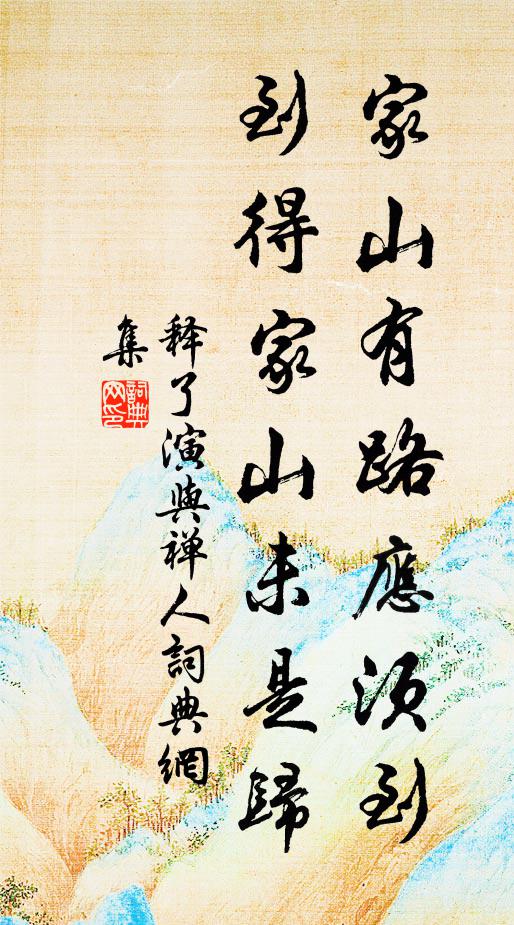 家山有路應須到
到得家山未是歸
释了演與禅人詞典網
集
詞典
网印